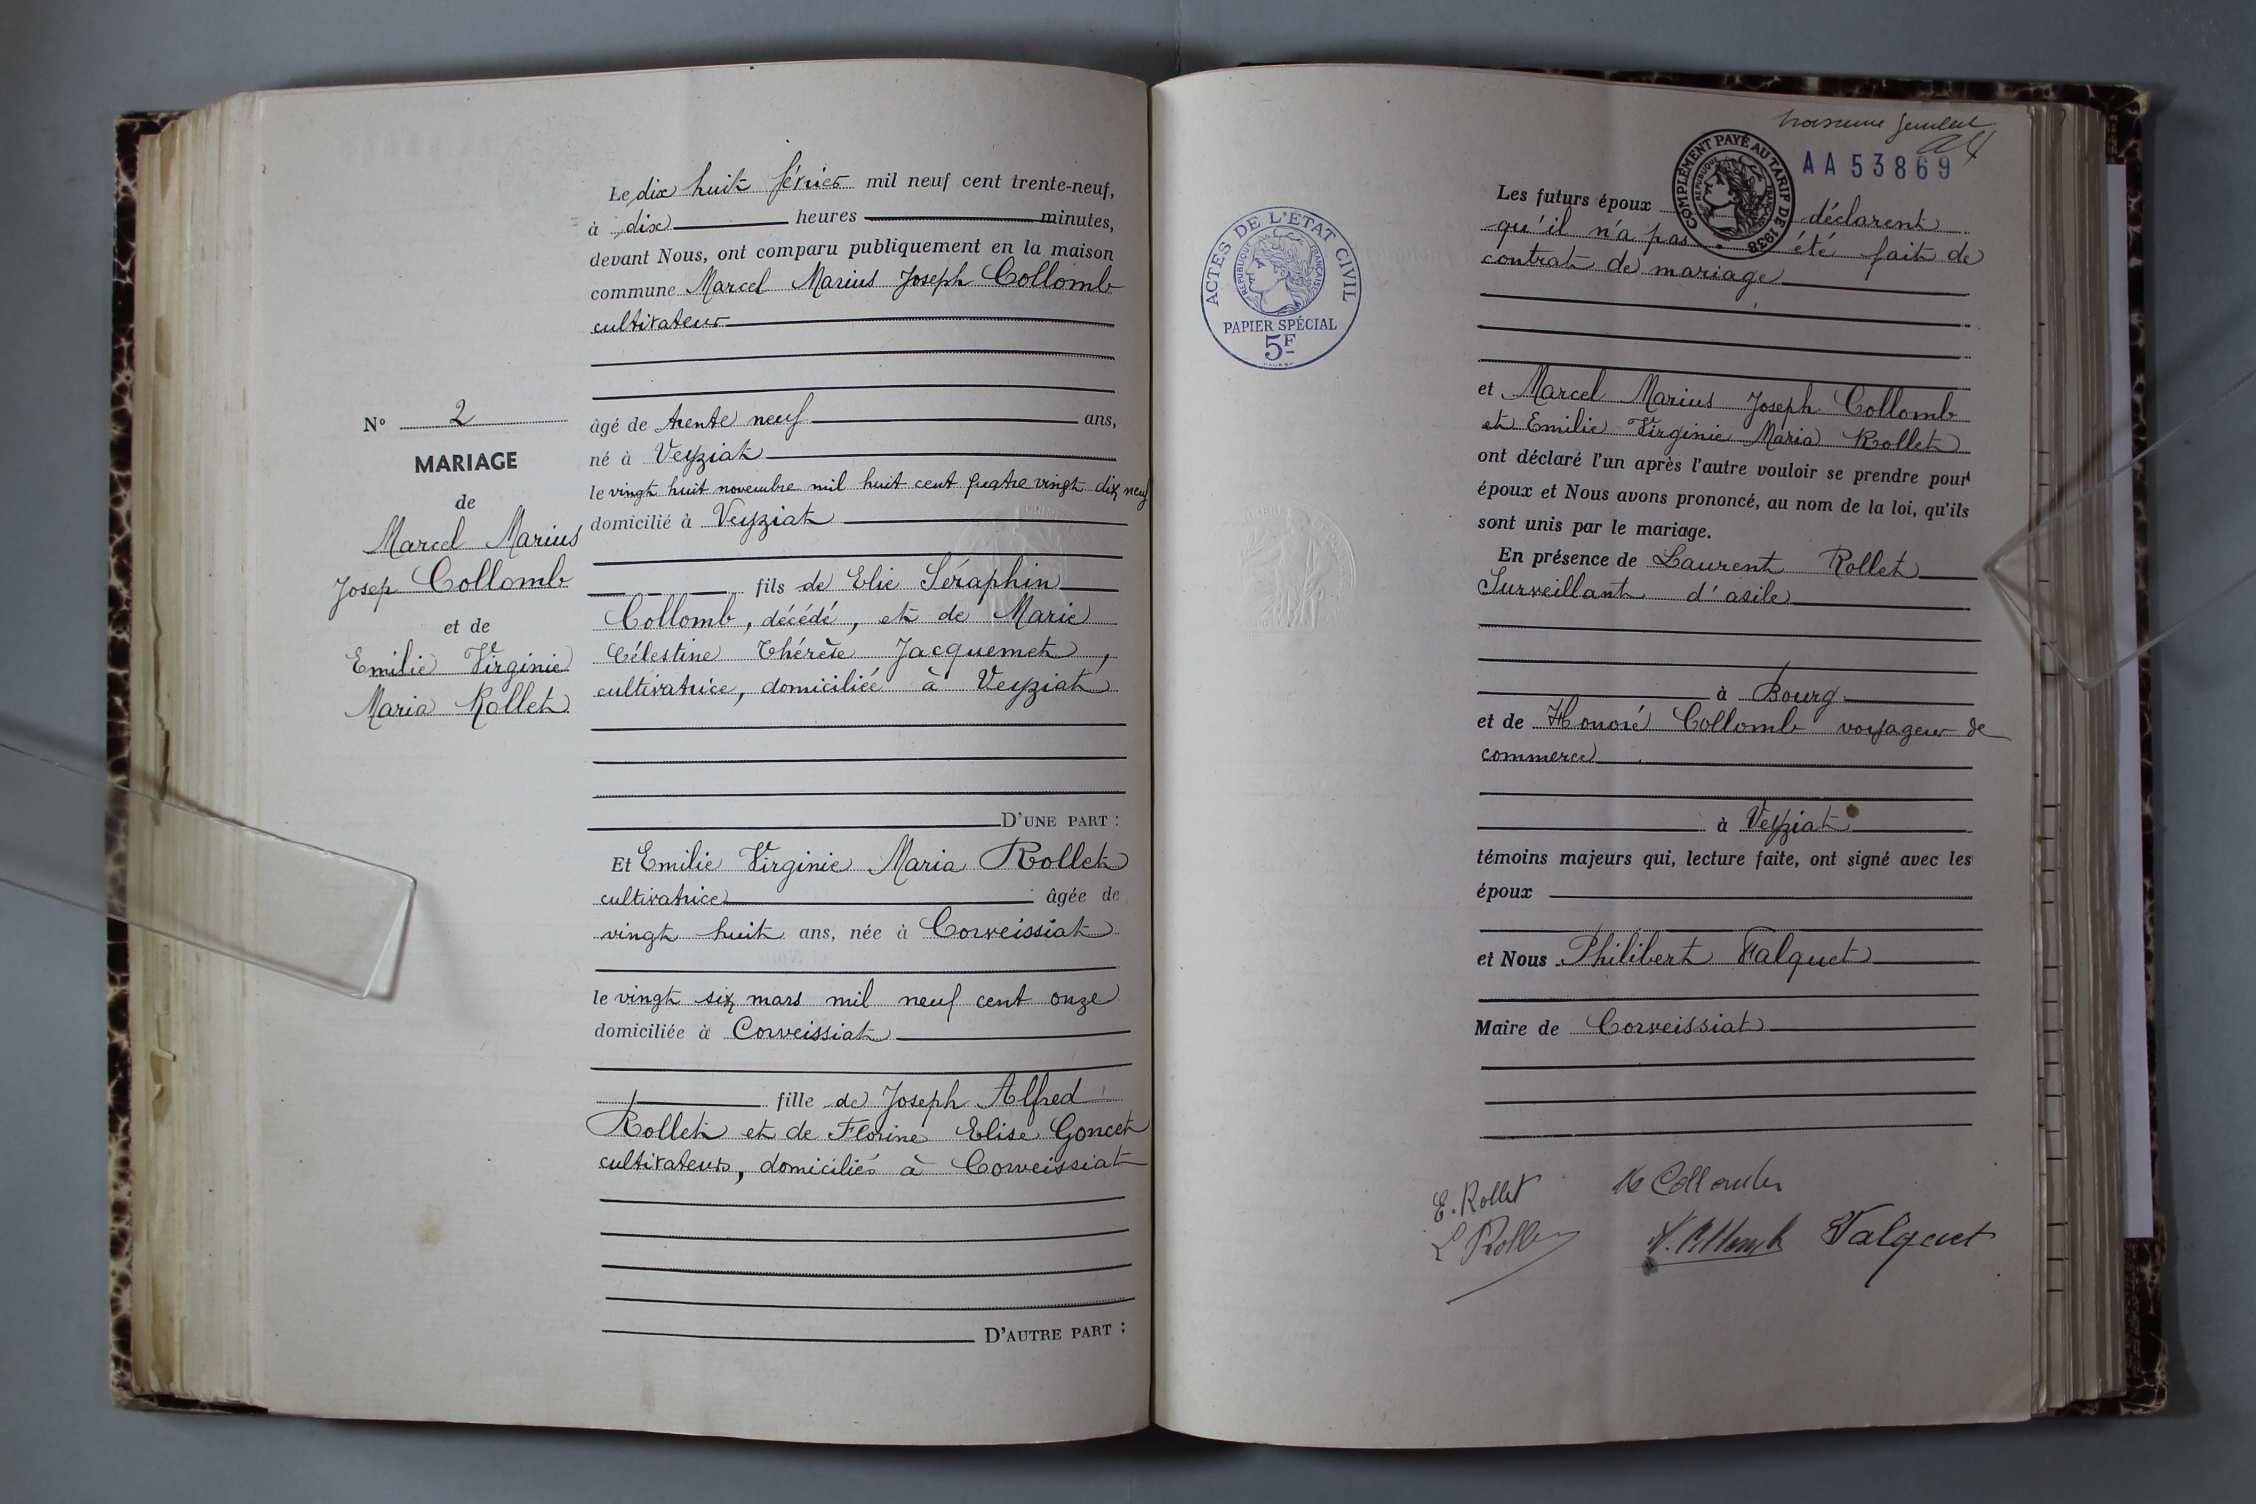 Le dix huit février mil neuf cent trente-neuf,
à dix heures minutes,
devant Nous, ont comparu publiquement en la maison
commune Marcel Marius Joseph Collomb
cultivateur
âgé de trente neuf ans,
né à Veyziat
le vingt huit novembre mil huit cent quatre vingt dix neuf
domicilié à Veyziat
fils de Elie Séraphin
Collomb, décédé, et de Marie
Célestine Thérèse Jacquemet,
cultivatrice, domiciliée à Veyziat
D'UNE PART :
Et Emilie Virginie Maria Rollet
cultivatrice âgée de
vingt huit ans, née à Corveissiat
le vingt six mars mil neuf cent onze
domiciliée à Corveissiat
fille de Joseph Alfred
Rollet et de Florine Elise Goncet
cultivateurs, domiciliés à Corveissiat
D'AUTRE PART :
N° 2
MARIAGE
de
Marcel Marius
Josep Collomb
et de
Emilie Virginie
Maria Rollet
AA53869
COMPLÉMENT PAYÉ AU TARIF DE 1938
RÉPUBLIQUE FRANÇAISE
ACTES DE L'ÉTAT CIVIL
RÉPUBLIQUE FRANÇAISE
PAPIER SPÉCIAL
5F
Les futurs époux déclarent
qu'il n'a pas été fait de
contrat de mariage
et Marcel Marius Joseph Collomb
et Emilie Virginie Maria Rollet
ont déclaré l'un après l'autre vouloir se prendre pour
époux et Nous avons prononcé, au nom de la loi, qu'ils
sont unis par le mariage.
En présence de Laurent Rollet
Surveillant d'asile
à Bourg
et de Honoré Collomb voyageur de
commerce
à Veyziat
témoins majeurs qui, lecture faite, ont signé avec les
époux
et Nous Philibert Falquet
Maire de Corveissiat
E. Rollet
M Collomb
L Rollet
H. Collomb
Falquet